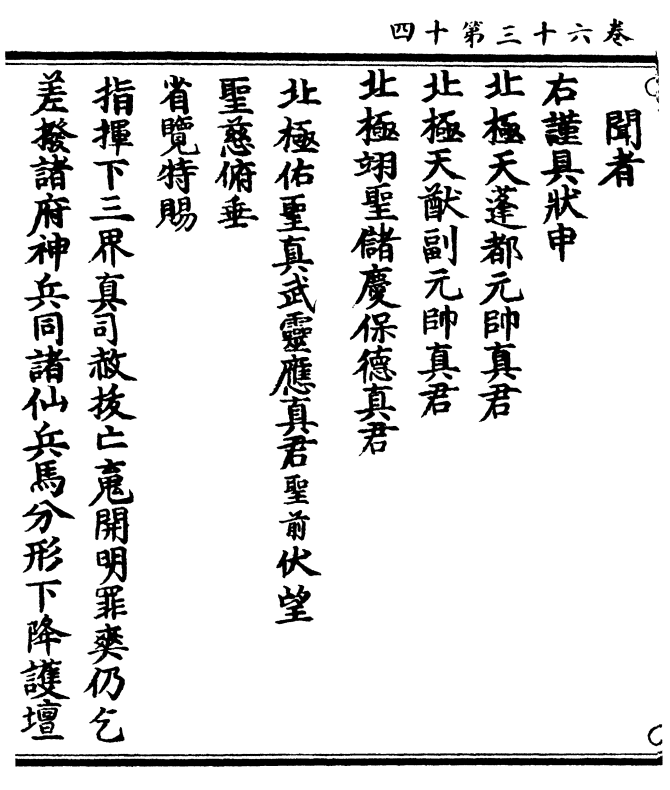 卷六十三第十四
聞者
右謹具狀申
北極天蓬都元帥真君
北極天猷副元帥真君
北極翊聖儲慶保德真君
北極佑聖真武靈應真君聖前伏望
聖慈俯垂
省覽特賜
指揮下三界真司赦拔亡䰟開明罪爽仍乞
差撥諸府神兵同諸仙兵馬分形下降護壇